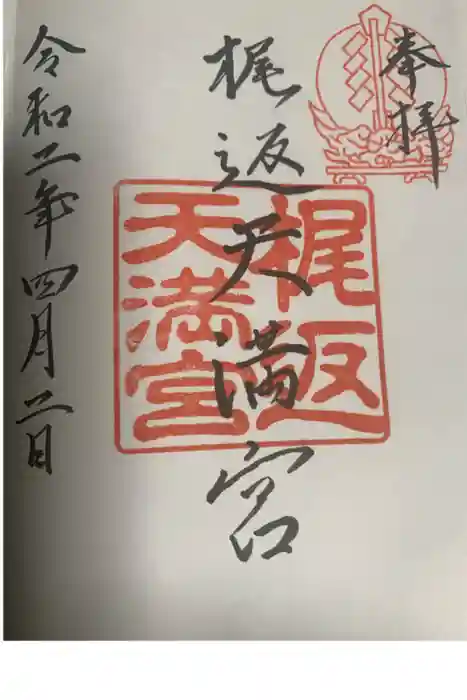 奉拝
梶返天満宮
梶返
天満宮
令和二年四月二日